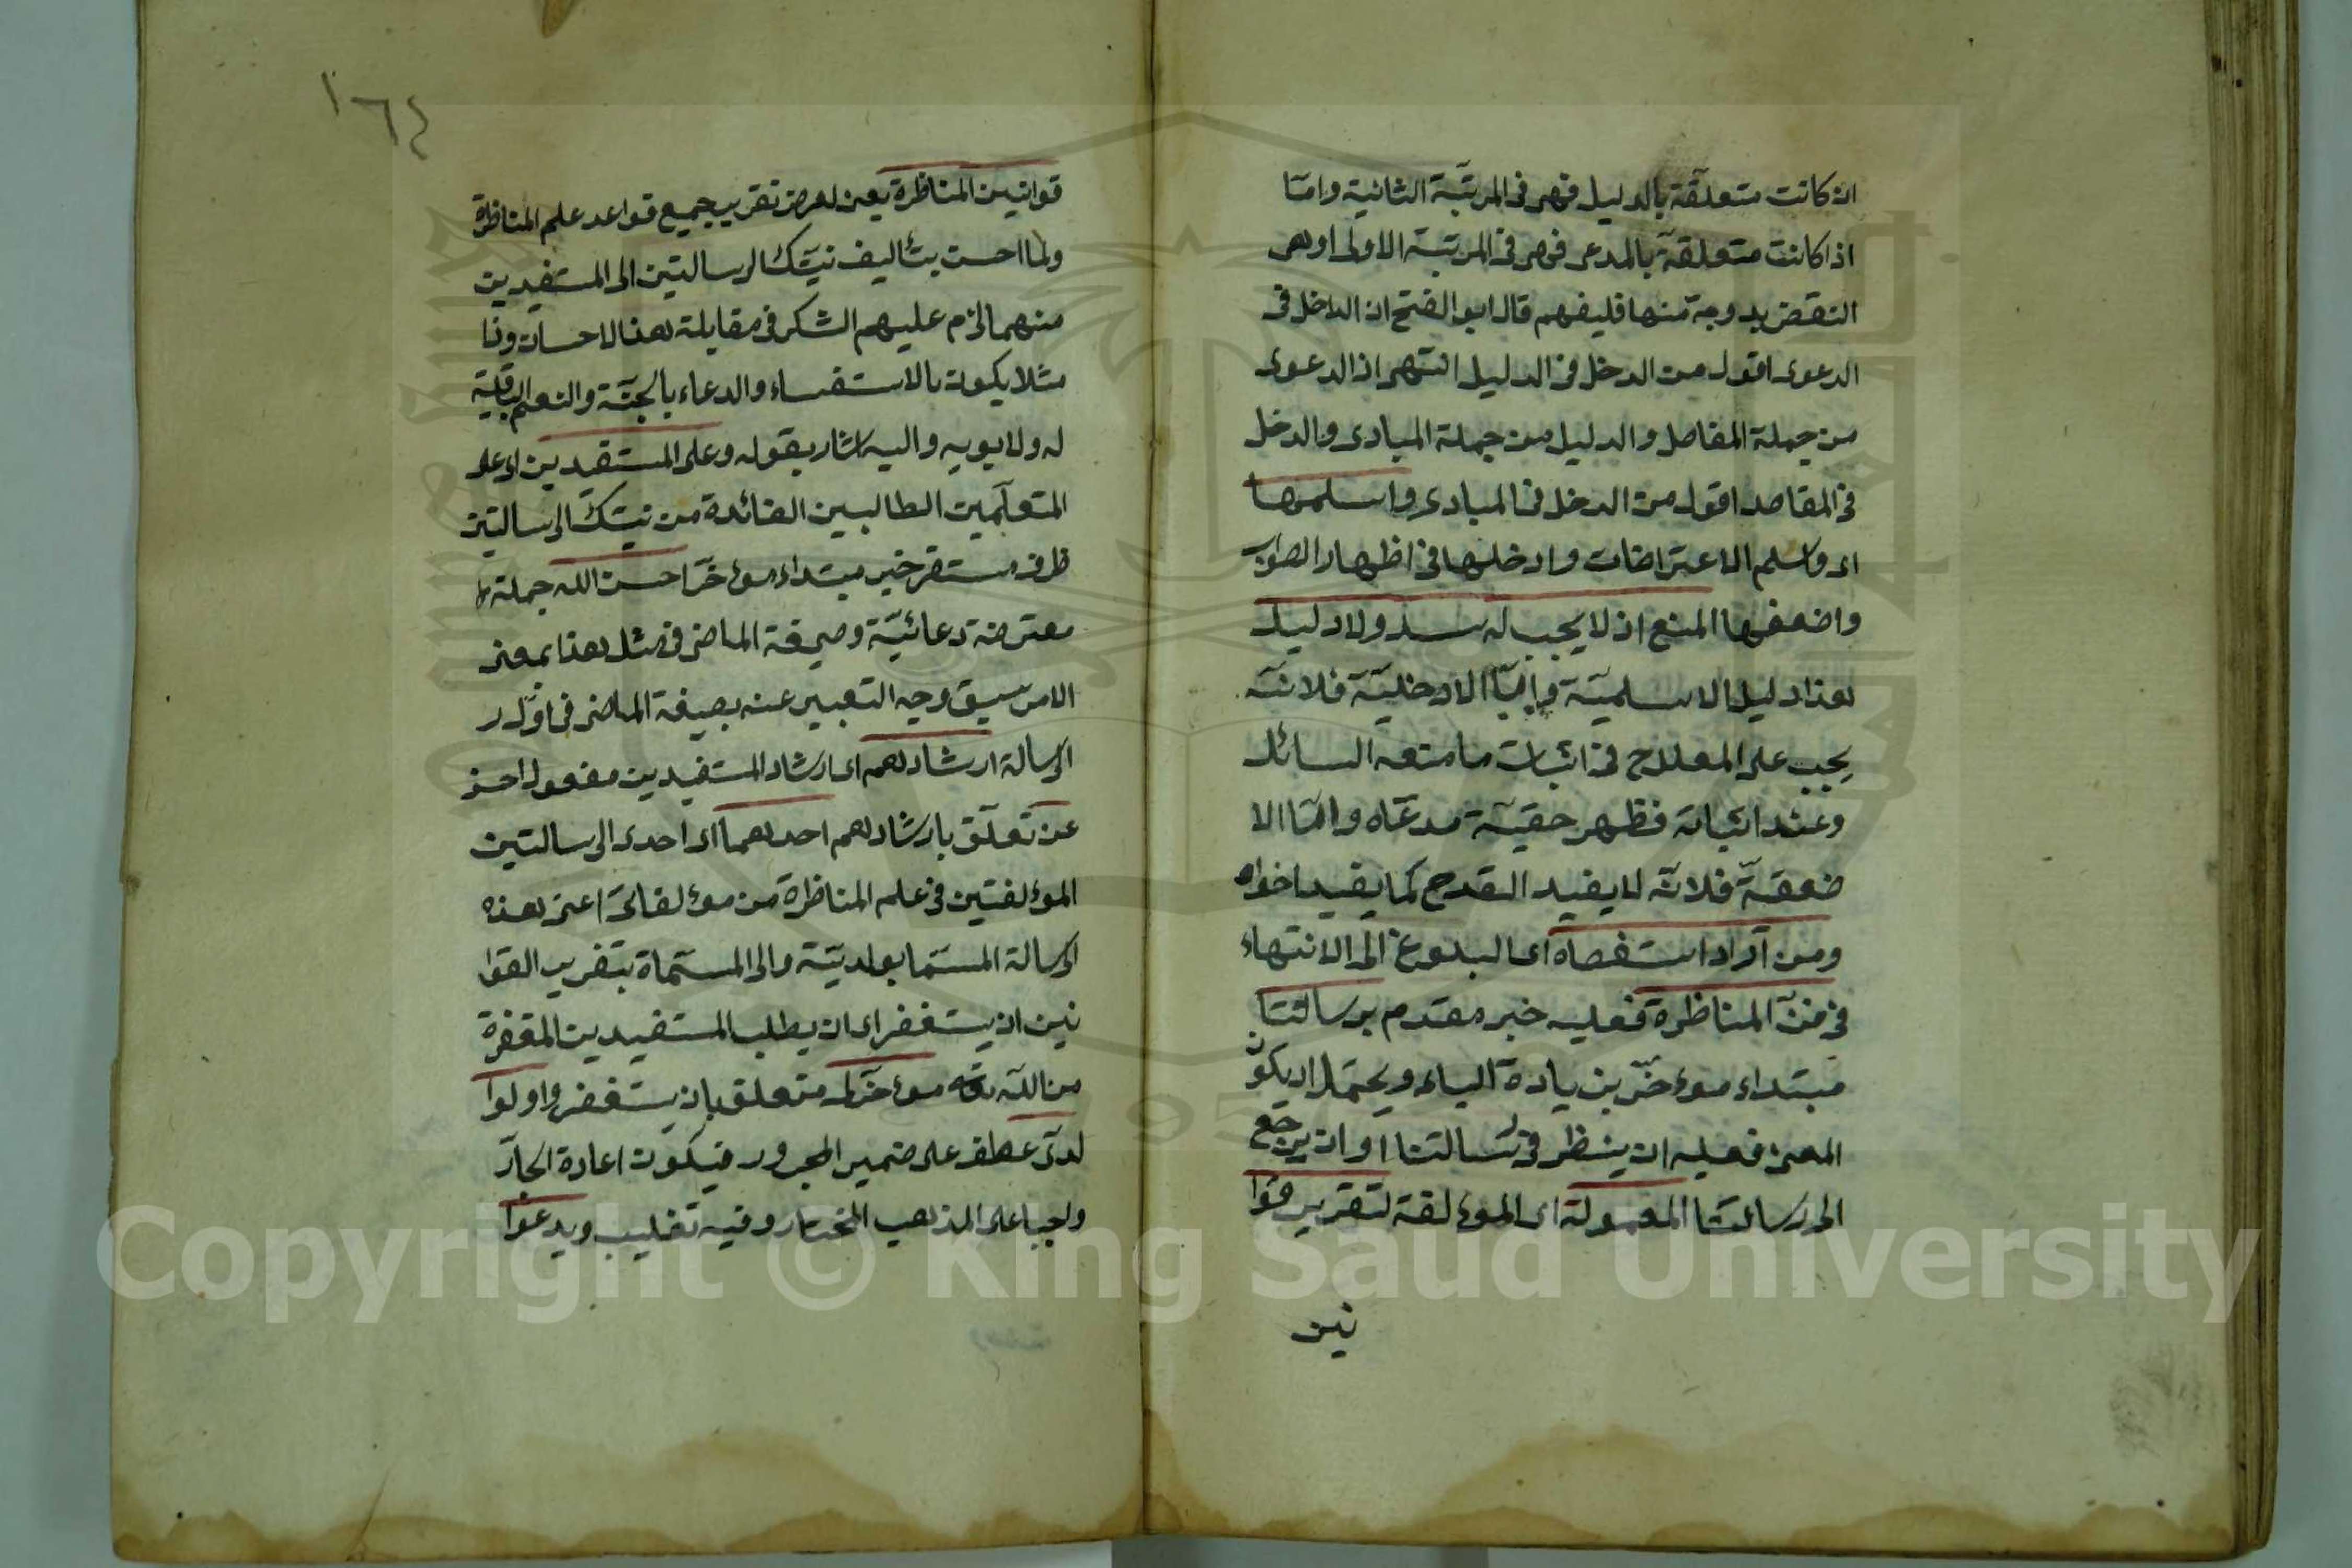 ان كانت متعلقة بالدليل فهى فى المرتبة الثانية وامّا
اذا كانت متعلقة بالمدعى فهى فى المرتبة الاولى اوهى
النقض بدوجة منها فليفهم قال ابو الفتح ان الداخل فى
الدعوى اقول من الدخل فى الدليل انتهى اذ الدعوى
من جملة المقاصل والدليل من جملة المبادى والدخل
فى المقاصد اقول من الدخل فى المبادى واسلمها
اى واسلم الاعتراضات وادخلها فى اظهار الصواب
واضعفها المنع اذ لا يجب له سند ولا دليل
هذا دليل الاسلمية وامّا الادخلية فلانّه
يجب على المعلل ح فى اثبات ما منعه السائل
وعند اثباته فظهر حقيّة مدعاه وامّا الا
ضعفيّة فلانّه لا يفيد القدح كما يفيد اخواه
ومن اراد استقصاه اى البلوغ الى الانتهاء
فى فنّ المناظرة فعليه خبر مقدم برسالتنا
مبتداء موءخّر بزيادة الباء ويحتمل ان يكون
المعنى فعليه ان ينظر فى رسالتنا او ان يرجع
الى رسالتنا المعمولة اى الموءلفة لتقرير قوا
نين
١٦٤
قوانين المناظرة يعنى لغرض تقريب جميع قواعد علم المناظرة
ولما احسن بتأليف تينك الرسالتين الى المستفيدين
منهما لزم عليهم الشكر فى مقابلة هذا الاحسان وذا
مثلا يكون بالاستغفار والدعاء بالجنّة والنعم الباقية
له ولابويه واليه اشار بقوله وعلى المستفيدين اى على
المتعلّمين الطالبين الفائدة من تينك الرسالتين
ظرف مستقر خبر مبتداء موءخّر احسن الله جملة
معترضة دعائيّة وصيغة الماضى فى مثل هذا بمعنى
الامر سبق وجه التعبير عنه بصيغة الماضى فى اوّل
الرسالة ارشادهم اى ارشاد المستفيدين مفعول احسن
عن تعلّق بارشادهم احدهما اى احدى الرسالتين
الموءلفتين فى علم المناظرة من موءلفاتى اعنى هذه
الرسالة المسمّا بولديّة والى المسمّاة بتقريب القوا
نين ان يستغفر اى ان يطلب المستفيدين المغفرة
من الله تعه موءخّر لى متعلق بان يستغفر واولوا
لدىّ عطف على ضمير المجرور فيكون اعادة الجارّ
واجبا على المذهب المختار وفيه تغليب ويدعوا
Copyright © King Saud University
1957